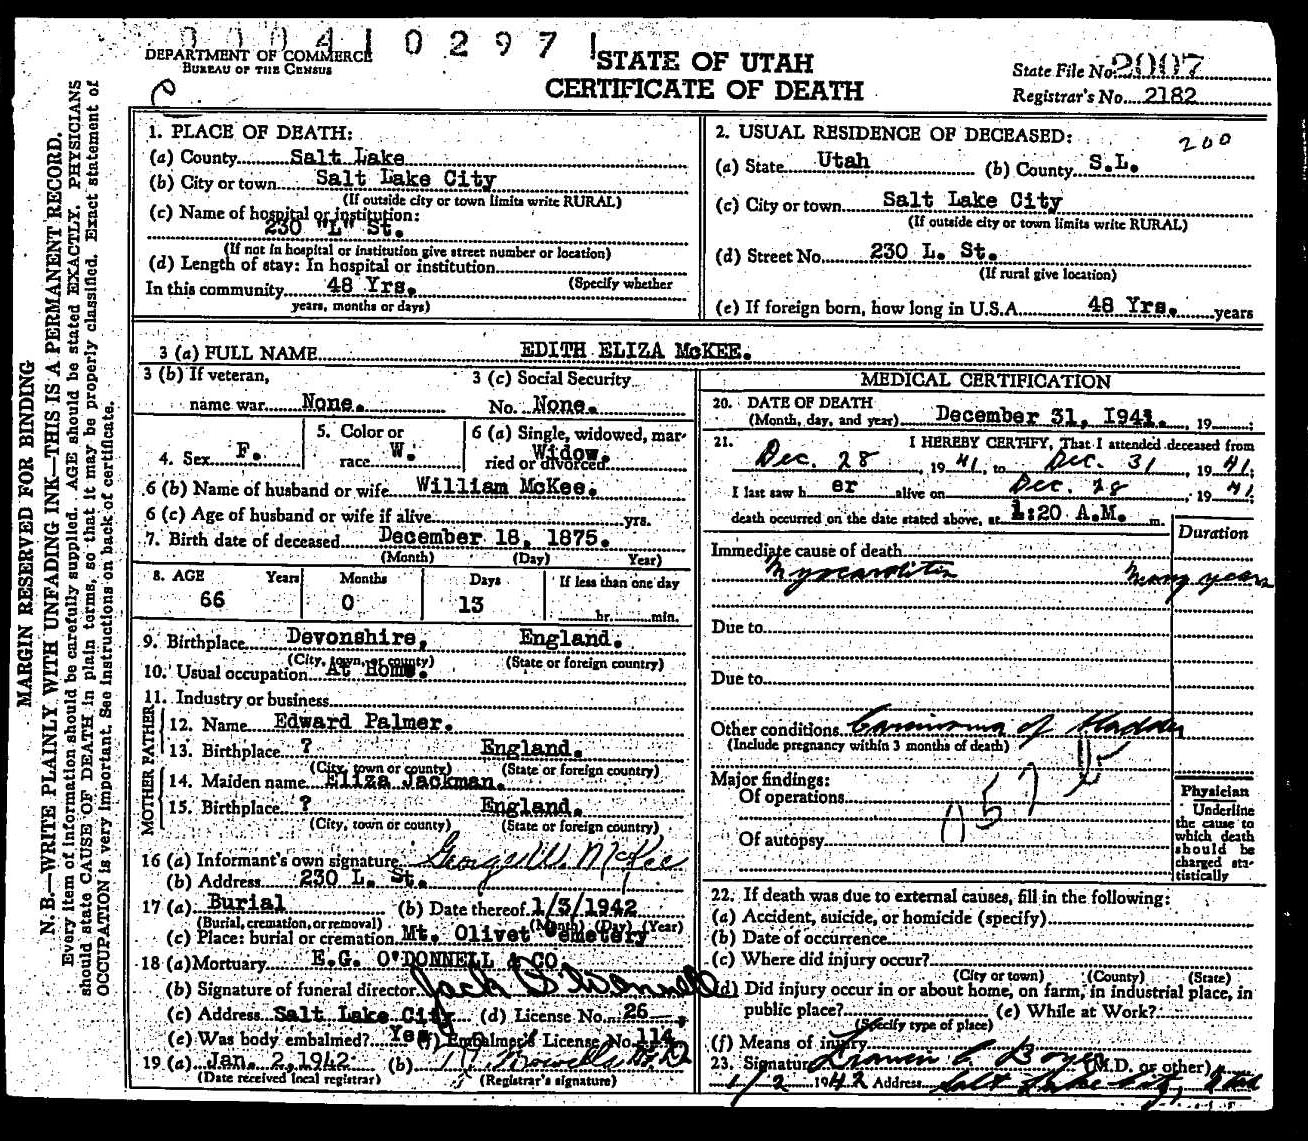 0004 0297
DEPARTMENT OF COMMERCE
BUREAU OF THE CENSUS
STATE OF UTAH
CERTIFICATE OF DEATH
State File No. 2007
Registrar's No. 2182
MARGIN RESERVED FOR BINDING
N. B.—WRITE PLAINLY WITH UNFADING INK—THIS IS A PERMANENT RECORD.
Every item of information should be carefully supplied. AGE should be stated EXACTLY. PHYSICIANS
should state CAUSE OF DEATH in plain terms, so that it may be properly classified. Exact statement of
OCCUPATION is very important. See instructions on back of certificate.
1. PLACE OF DEATH:
(a) County Salt Lake
(b) City or town Salt Lake City
(If outside city or town limits write RURAL)
(c) Name of hospital or institution:
230 "L" St.
(If not in hospital or institution give street number or location)
(d) Length of stay: In hospital or institution
(Specify whether
In this community 48 Yrs.
years, months or days)
2. USUAL RESIDENCE OF DECEASED: 200
(a) State Utah (b) County S.L.
(c) City or town Salt Lake City
(If outside city or town limits write RURAL)
(d) Street No. 230 L. St.
(If rural give location)
(e) If foreign born, how long in U.S.A. 48 Yrs. years
3 (a) FULL NAME EDITH ELIZA McKEE.
3 (b) If veteran, 3 (c) Social Security
name war None. No. None.
4. Sex F. 5. Color or race W. 6 (a) Single, widowed, married or divorced Widow.
6 (b) Name of husband or wife William McKee.
6 (c) Age of husband or wife if alive yrs.
7. Birth date of deceased December 18, 1875.
(Month) (Day) Year)
8. AGE Years Months Days If less than one day
66 0 13 hr. min.
9. Birthplace Devonshire, England.
(City, town, or county) (State or foreign country)
10. Usual occupation At Home.
11. Industry or business
FATHER
12. Name Edward Palmer.
13. Birthplace ? England.
(City, town or county) (State or foreign country)
MOTHER
14. Maiden name Eliza Jackman.
15. Birthplace ? England.
(City, town or county) (State or foreign country)
16 (a) Informant's own signature George W. McKee
(b) Address 230 L. St.
17 (a) Burial (b) Date thereof 1/3/1942
(Burial, cremation, or removal) (Month) (Day) (Year)
(c) Place: burial or cremation Mt. Olivet Cemetery
18 (a) Mortuary E.G. O'DONNELL & CO
(b) Signature of funeral director Jack O'Donnell
(c) Address Salt Lake City (d) License No. 26
(e) Was body embalmed? Yes (f) Embalmer's License No. 114
19 (a) Jan. 2, 1942 (b)
(Date received local registrar) (Registrar's signature)
MEDICAL CERTIFICATION
20. DATE OF DEATH
(Month, day, and year) December 31, 1941. 19 ;
21. I HEREBY CERTIFY, That I attended deceased from
Dec. 28, 1941, to Dec. 31, 1941;
I last saw her alive on Dec. 28, 1941;
death occurred on the date stated above, at 1:20 A.M. m.
Duration
Immediate cause of death
Myocarditis Many years
Due to
Due to
Other conditions Carcinoma of Bladder
(Include pregnancy within 3 months of death)
Major findings:
Of operations
Of autopsy
Physician
Underline
the cause to
which death
should be
charged sta-
tistically
22. If death was due to external causes, fill in the following:
(a) Accident, suicide, or homicide (specify)
(b) Date of occurrence
(c) Where did injury occur?
(City or town) (County) (State)
(d) Did injury occur in or about home, on farm, in industrial place, in
public place? (e) While at Work?
(Specify type of place)
(f) Means of injury
23. Signature (M.D. or other)
1/2 1942 Address Salt Lake City, Utah